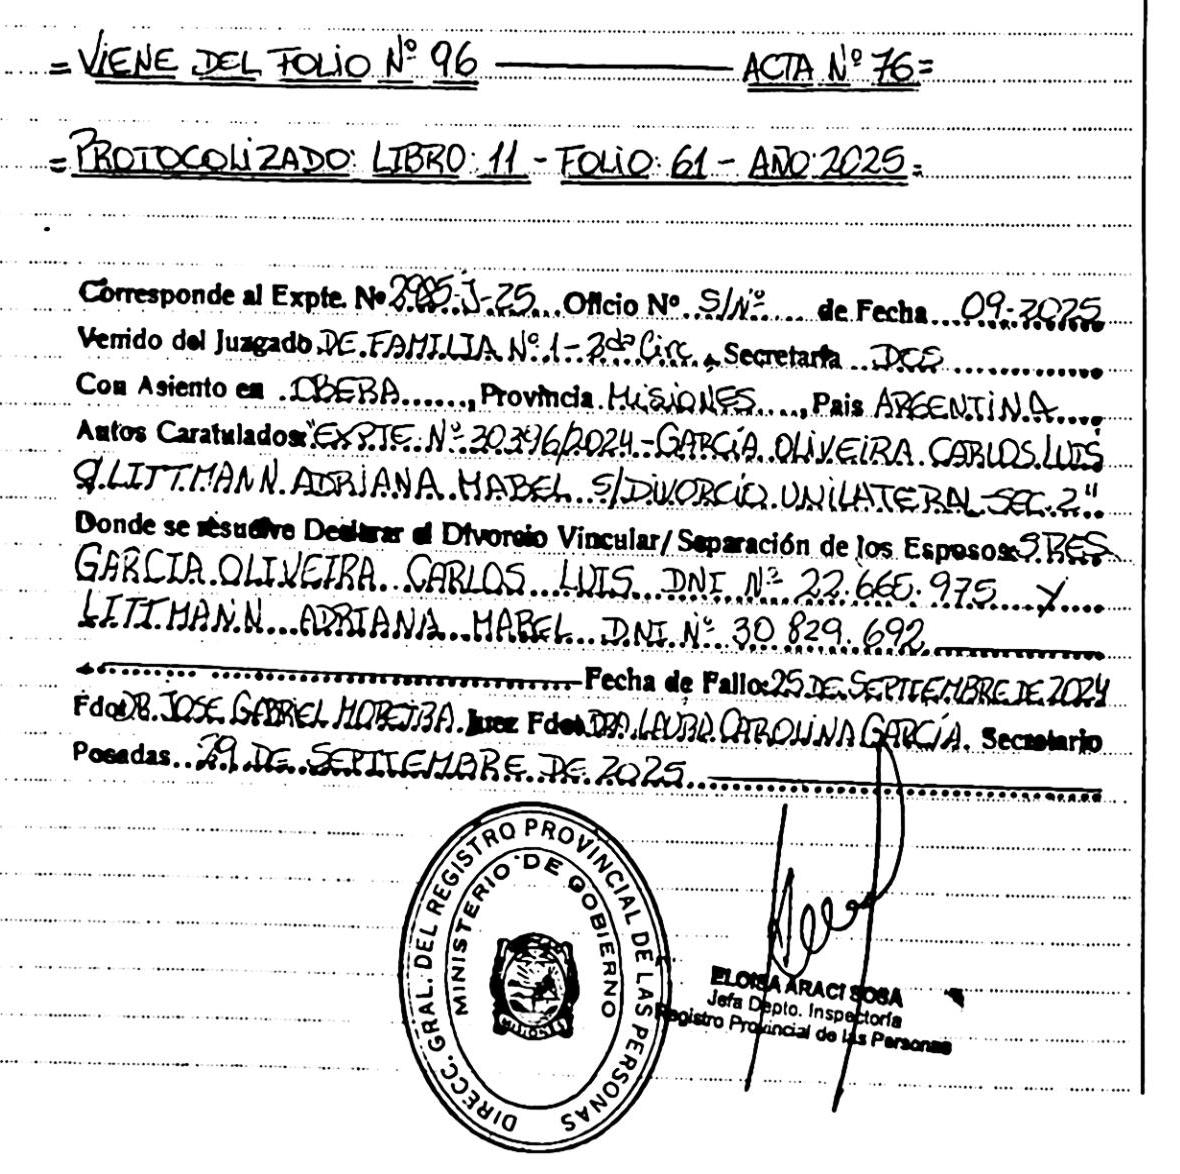 =VIENE DEL FOLIO Nº 96 ——— ACTA Nº 76=
=PROTOCOLIZADO: LIBRO: 11 - FOLIO: 61 - AÑO: 2025=
Corresponde al Expte. Nº 2985-J-25 Oficio Nº S/Nº de Fecha 09-2025
Venido del Juzgado DE FAMILIA Nº 1 - 2da Circ., Secretaría DOS
Con Asiento en OBERA, Provincia MISIONES, Pais ARGENTINA
Autos Caratulados: "EXPTE. Nº 30396/2024 - GARCÍA OLIVEIRA CARLOS LUIS
C/LITTMANN ADRIANA MABEL S/DIVORCIO UNILATERAL - SEC. 2"
Donde se resuelve Declarar el Divorcio Vincular/Separación de los Esposos: SRES
GARCIA OLIVEIRA CARLOS LUIS DNI Nº 22.665.975 Y
LITTMANN ADRIANA MABEL DNI Nº 30 829.692
Fecha de Fallo: 25 DE SEPTIEMBRE DE 2024
Fdo: DR. JOSE GABRIEL MOREIRA. Juez Fdo: DRA. LAURA CAROLINA GARCÍA. Secretario
Posadas 29 DE SEPTIEMBRE DE 2025
DIRECC. GRAL. DEL REGISTRO PROVINCIAL DE LAS PERSONAS
MINISTERIO DE GOBIERNO
ELOISA ARACI SOSA
Jefa Depto. Inspectoría
Registro Provincial de las Personas